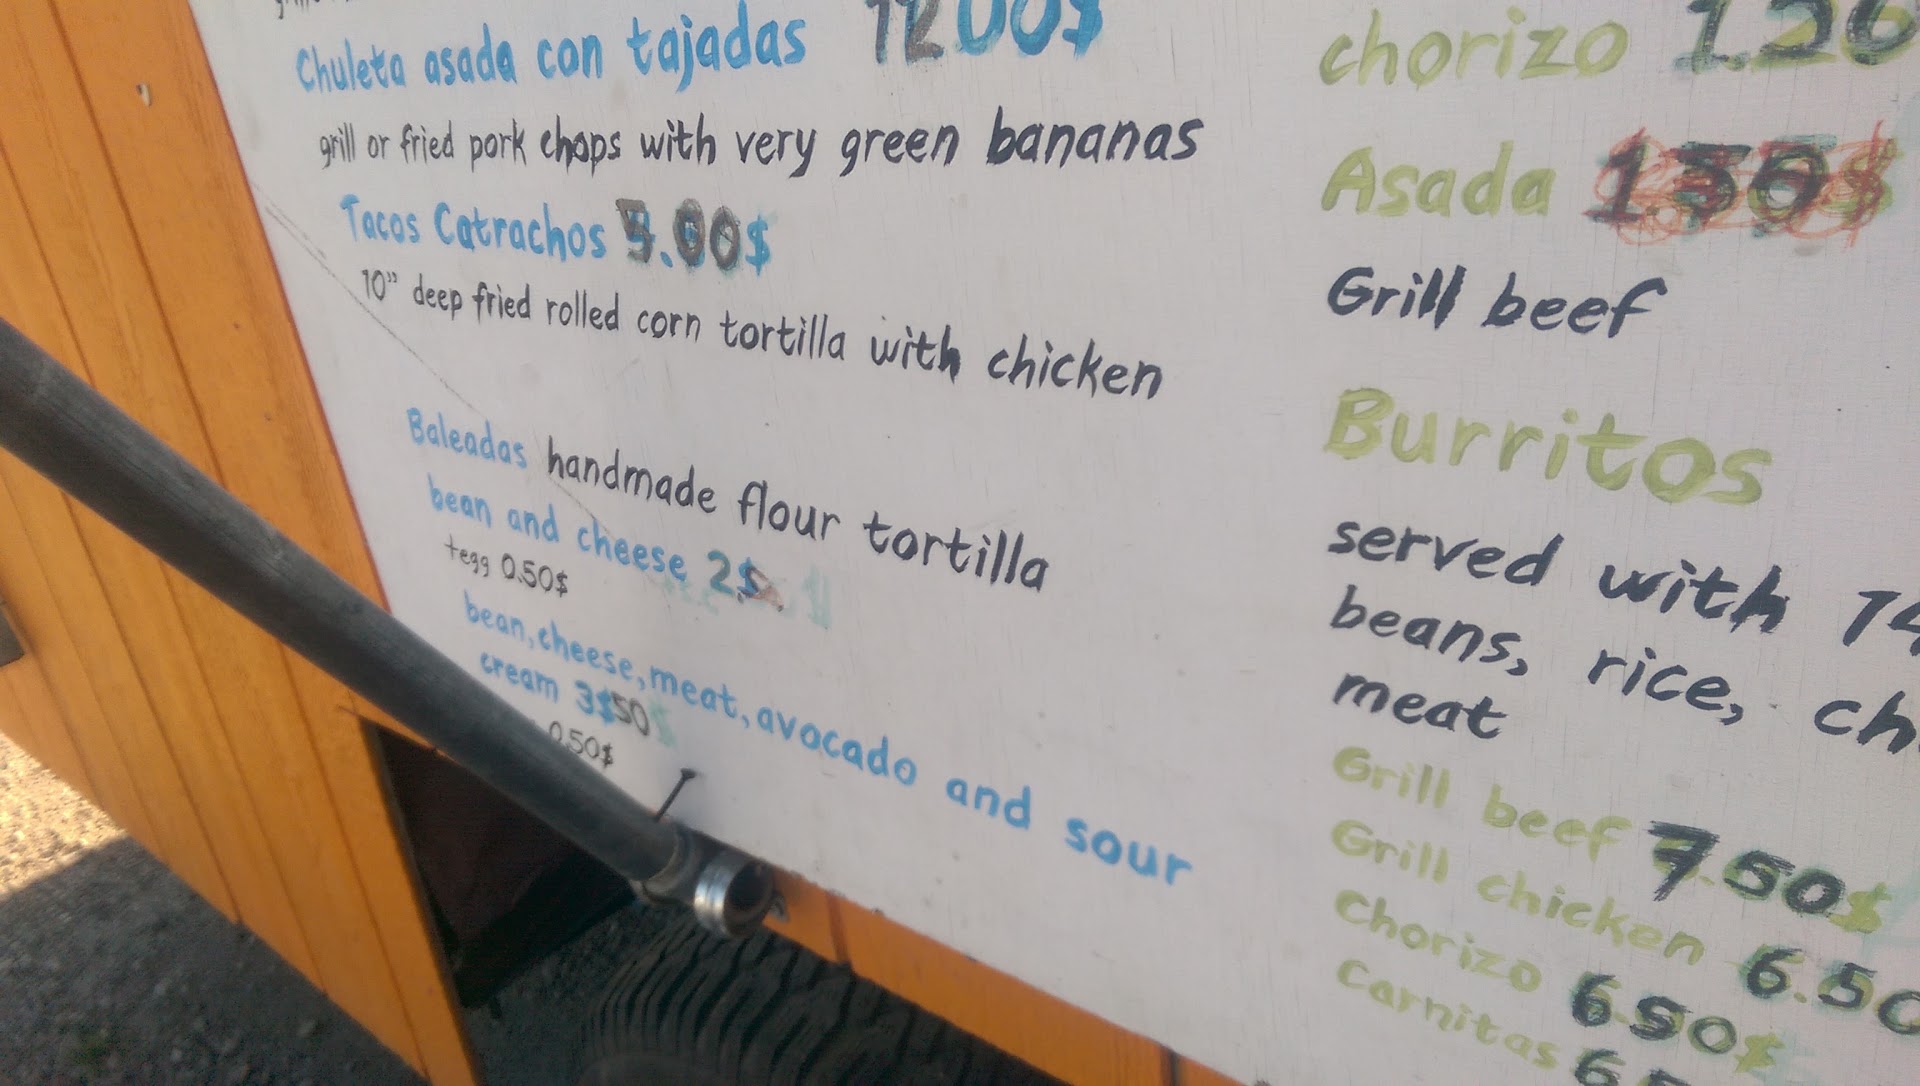 Chuleta asada con tajadas 1200$
grill or fried pork chops with very green bananas
Tacos Catrachos 5.00$
10" deep fried rolled corn tortilla with chicken
Baleadas handmade flour tortilla
bean and cheese 2$
+egg 0.50$
bean, cheese, meat, avocado and sour
cream 3$50
0.50$
chorizo
Asada
Grill beef
Burritos
served with 14
beans, rice,
meat
Grill beef 7.50$
Grill chicken 6.50
Chorizo 6.50$
Carnitas